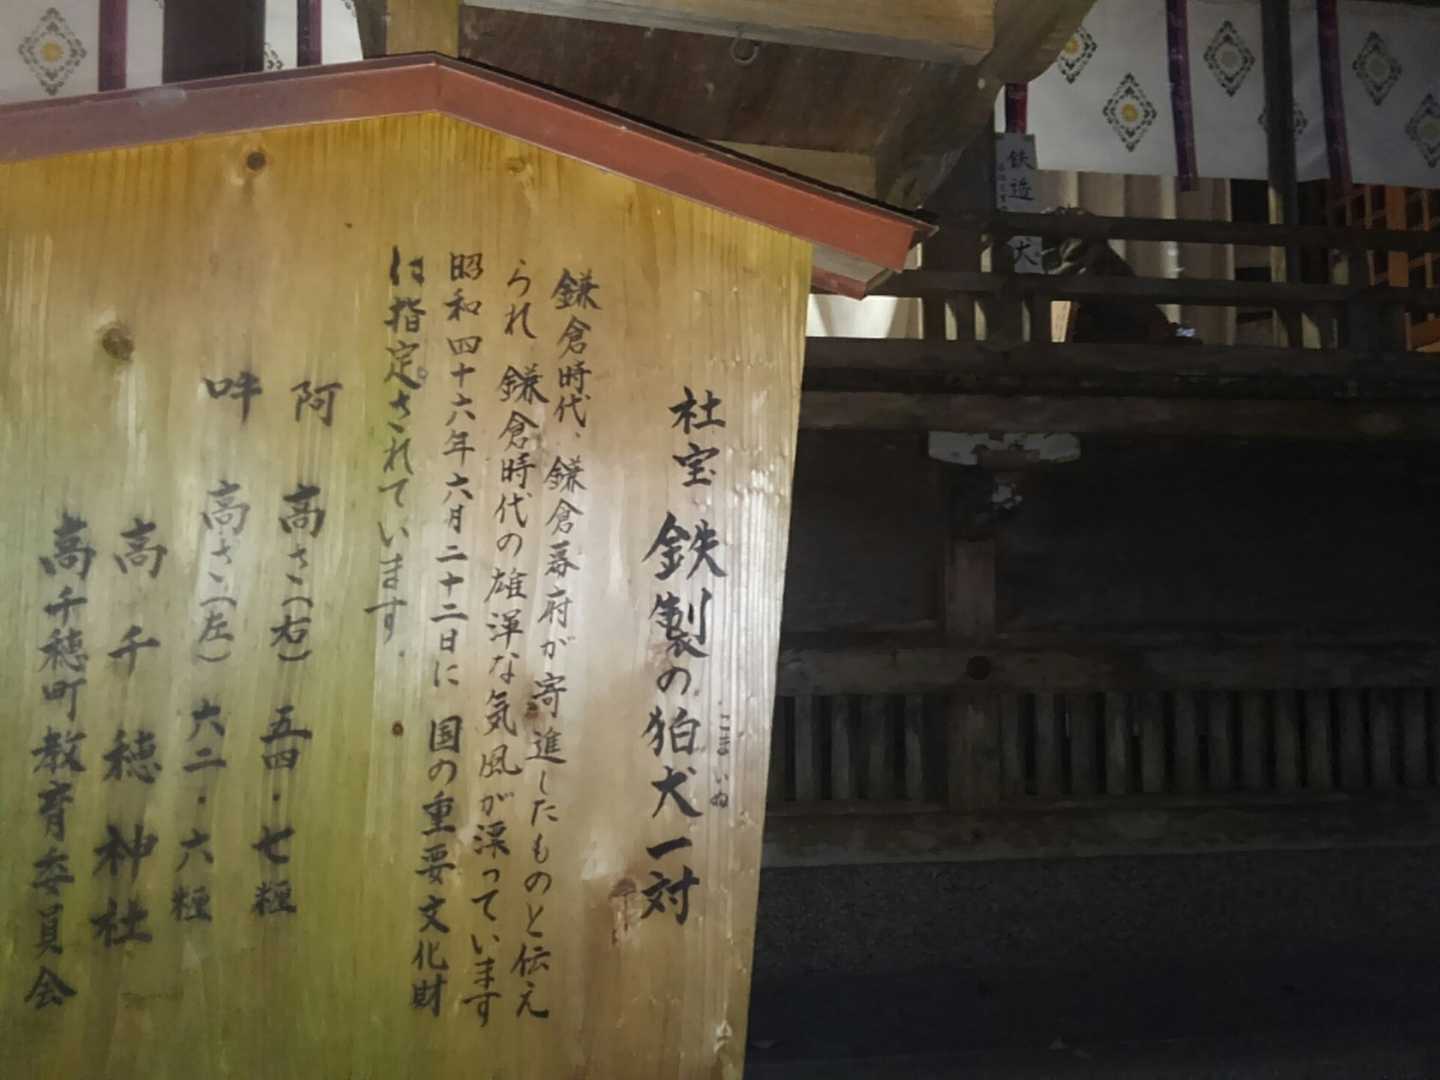 社宝 鉄製の狛犬一対
こまいぬ
鎌倉時代、鎌倉幕府が寄進したものと伝え
られ 鎌倉時代の雄渾な気風が漂っています
昭和四十六年六月二十二日に 国の重要文化財
に指定されています。
阿 高さ(右) 五四・七糎
吽 高さ(左) 六二・六糎
高千穂神社
高千穂町教育委員会
鉄造
犬